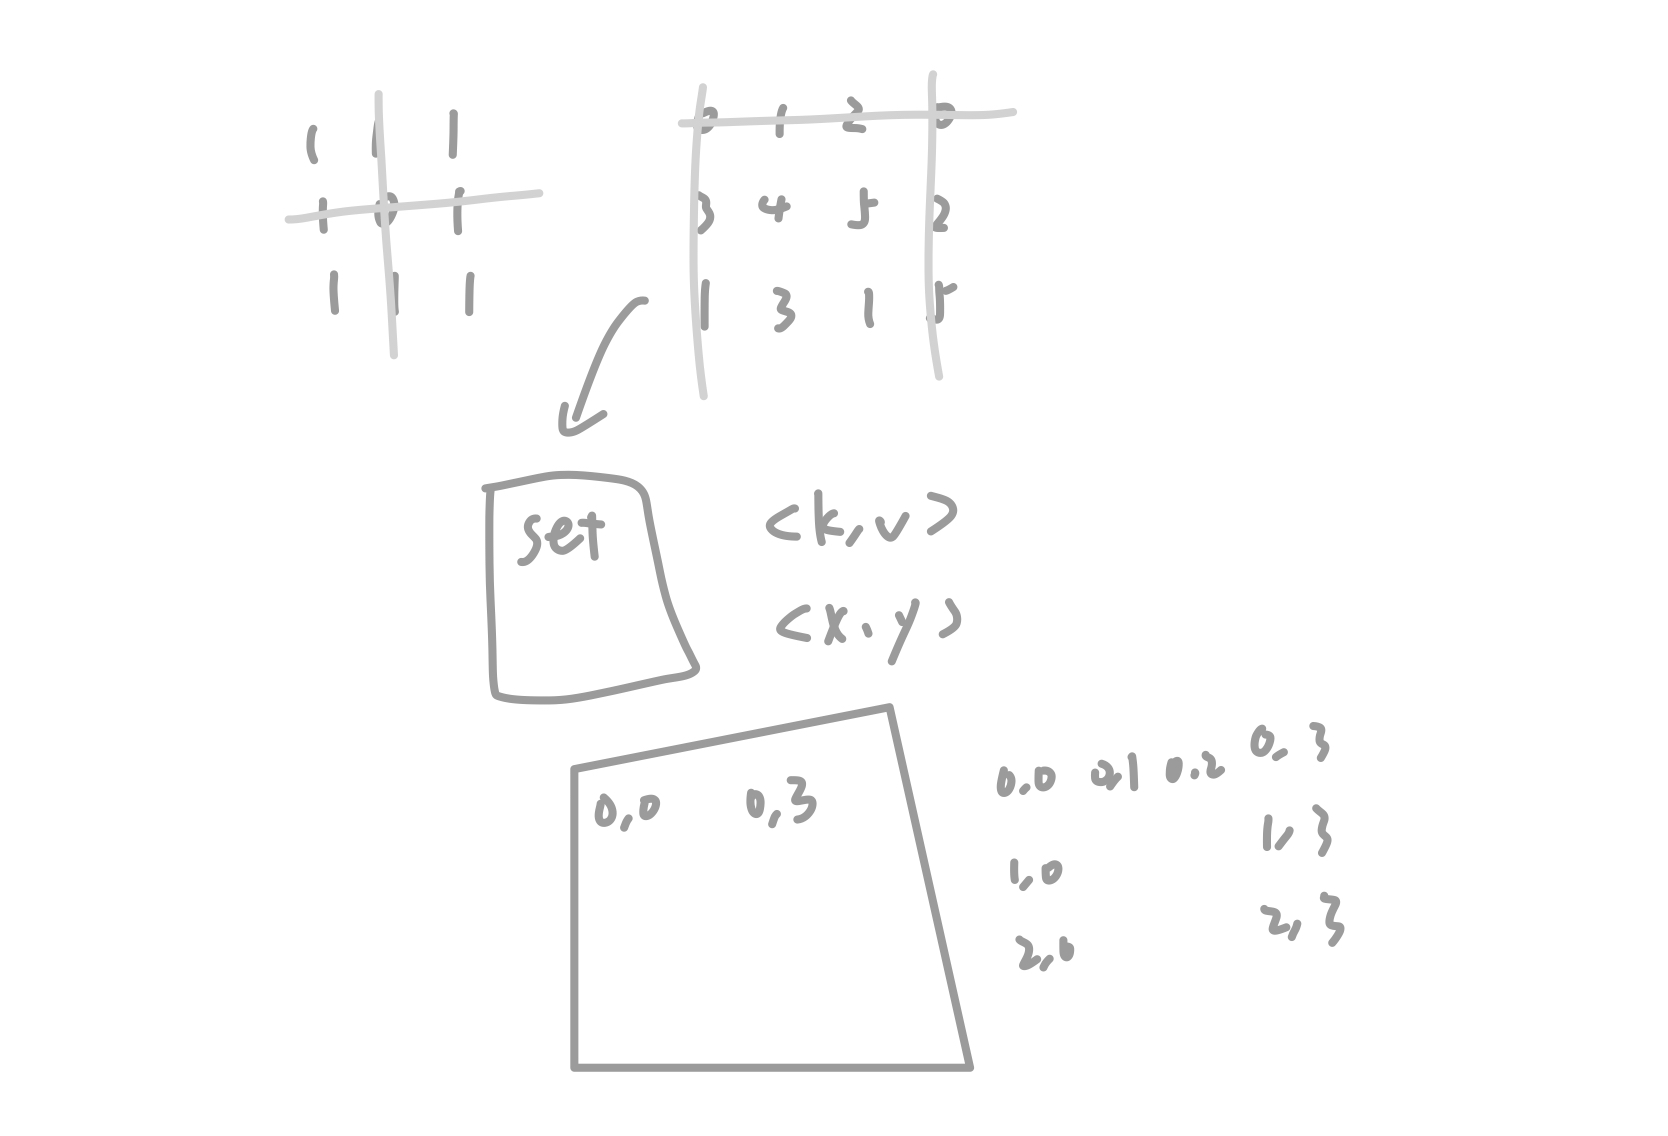 1 1 1
1 0 1
1 1 1
0 1 2 0
3 4 5 2
1 3 1 5
set
<k,v>
<x.y>
0,0 0,3
0,0 0,1 0.2 0,3
1,0 1,3
2,0 2,3